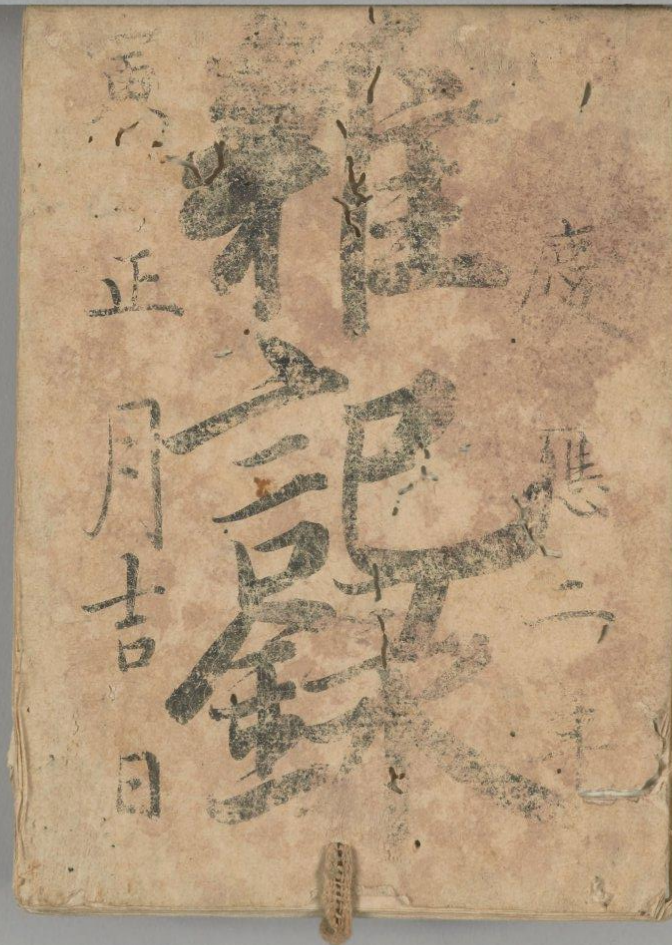 慶應二年
雜記録
寅正月吉日